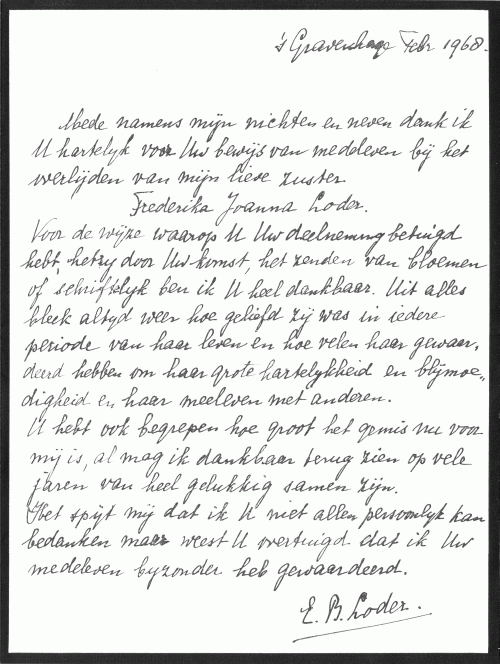 's Gravenhage Febr 1968.
Mede namens mijn nichten en neven dank ik
U hartelyk voor Uw bewijs van medeleven bij het
overlijden van mijn lieve zuster
Frederika Joanna Loder.
Voor de wijze waarop U Uw deelneming betuigd
hebt, hetzy door Uw komst, het zenden van bloemen
of schriftelyk ben ik U heel dankbaar. Uit alles
bleek altyd weer hoe geliefd zij was in iedere
periode van haar leven en hoe velen haar gewaar„
deerd hebben om haar grote hartelykheid en blijmoe„
digheid en haar meeleven met anderen.
U hebt ook begrepen hoe groot het gemis nu voor
mij is, al mag ik dankbaar terug zien op vele
jaren van heel gelukkig samen zijn.
Het spijt mij dat ik U niet allen persoonlyk kan
bedanken maar weest U overtuigd dat ik Uw
medeleven byzonder heb gewaardeerd.
E. B. Loder.